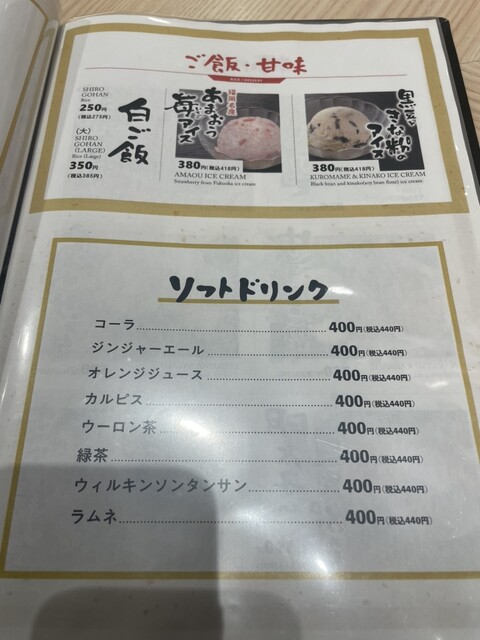 ご飯・甘味
RICE / DESSERT
SHIRO
GOHAN
Rice
250円
(税込275円)
(大)
SHIRO
GOHAN
(LARGE)
Rice (Large)
350円
(税込385円)
白ご飯
福岡名産
あまおう
苺アイス
380円(税込418円)
AMAOU ICE CREAM
Strawberry from Fukuoka ice cream
黒豆と
きな粉の
アイス
380円(税込418円)
KUROMAME & KINAKO ICE CREAM
Black bean and kinako(soy bean flour) ice cream
ソフトドリンク
コーラ 400円(税込440円)
ジンジャーエール 400円(税込440円)
オレンジジュース 400円(税込440円)
カルピス 400円(税込440円)
ウーロン茶 400円(税込440円)
緑茶 400円(税込440円)
ウィルキンソンタンサン 400円(税込440円)
ラムネ 400円(税込440円)